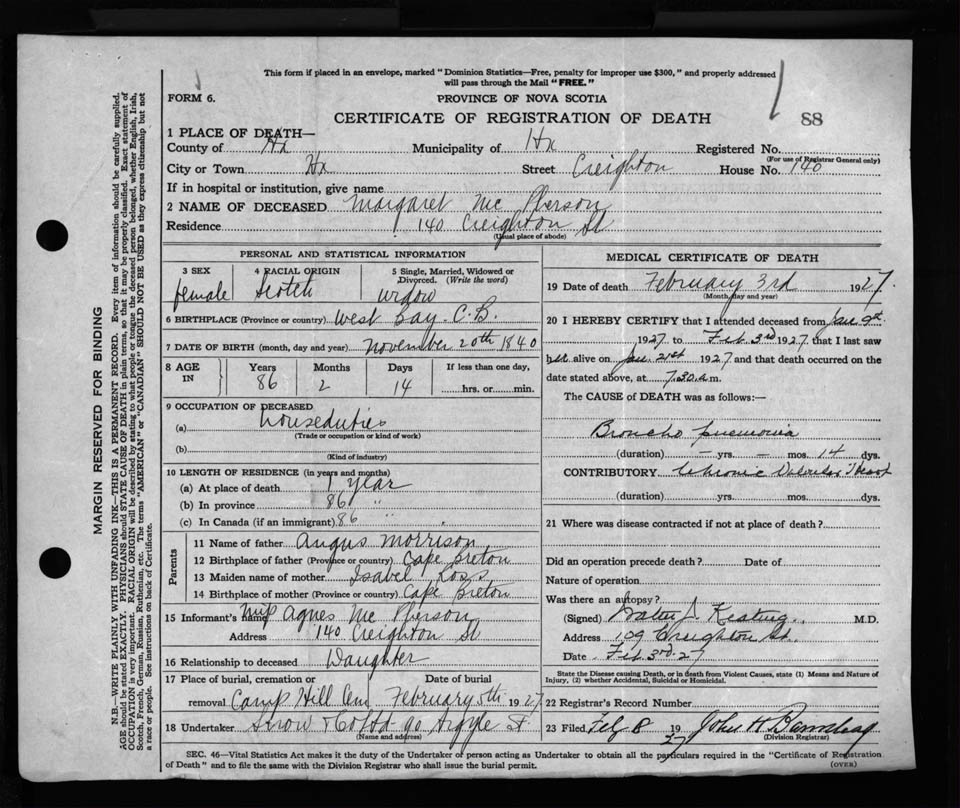 This form if placed in an envelope, marked "Dominion Statistics—Free, penalty for improper use $300," and properly addressed
will pass through the Mail "FREE."
FORM 6.
PROVINCE OF NOVA SCOTIA
CERTIFICATE OF REGISTRATION OF DEATH
88
1 PLACE OF DEATH—
County of Hx Municipality of Hx Registered No.
(For use of Registrar General only)
City or Town Hx Street Creighton House No. 140
If in hospital or institution, give name
2 NAME OF DECEASED Margaret Mc Pherson
Residence 140 Creighton St
(Usual place of abode)
PERSONAL AND STATISTICAL INFORMATION
3 SEX 4 RACIAL ORIGIN 5 Single, Married, Widowed or Divorced. (Write the word)
female Scotch widow
6 BIRTHPLACE (Province or country) West Bay C.B.
7 DATE OF BIRTH (month, day and year) November 20th 1840
8 AGE IN Years Months Days If less than one day,
86 2 14 hrs. or min.
9 OCCUPATION OF DECEASED
(a) houseduties
(Trade or occupation or kind of work)
(b)
(Kind of industry)
10 LENGTH OF RESIDENCE (in years and months)
(a) At place of death 1 year
(b) In province 86 "
(c) In Canada (if an immigrant) 86 "
Parents
11 Name of father Angus Morrison
12 Birthplace of father (Province or country) Cape Breton
13 Maiden name of mother Isabel Ross
14 Birthplace of mother (Province or country) Cape Breton
15 Informant's name Miss Agnes Mc Pherson
Address 140 Creighton St
16 Relationship to deceased Daughter
17 Place of burial, cremation or Date of burial
removal Camp Hill Cem February 5th 1927
18 Undertaker Snow & Co Ltd 90 Argyle St
(Name and address)
MEDICAL CERTIFICATE OF DEATH
19 Date of death February 3rd 1927
(Month, day and year)
20 I HEREBY CERTIFY that I attended deceased from Jan 9th
1927 to Feb 3rd 1927 that I last saw
her alive on Jan 21st 1927 and that death occurred on the
date stated above, at 7.30 a.m.
The CAUSE of DEATH was as follows:—
Broncho pneumonia
(duration) – yrs. – mos. 14 dys.
CONTRIBUTORY Chronic Valvular Heart
(duration) yrs. mos. dys.
21 Where was disease contracted if not at place of death?
Did an operation precede death? Date of
Nature of operation
Was there an autopsy?
(Signed) Keating M.D.
Address 109 Creighton St.
Date Feb 3rd 27
State the Disease causing Death, or in death from Violent Causes, state (1) Means and Nature of
Injury, (2) whether Accidental, Suicidal or Homicidal.
22 Registrar's Record Number
23 Filed Feb 8 1927 John H
(Division Registrar)
SEC. 46—Vital Statistics Act makes it the duty of the Undertaker of person acting as Undertaker to obtain all the particulars required in the "Certificate of Registration
of Death" and to file the same with the Division Registrar who shall issue the burial permit.
(OVER)
MARGIN RESERVED FOR BINDING
N.B.—WRITE PLAINLY WITH UNFADING INK—THIS IS A PERMANENT RECORD. Every item of information should be carefully supplied.
AGE should be stated EXACTLY. PHYSICIANS should STATE CAUSE OF DEATH in plain terms, so that it may be properly classified. Exact statement of
OCCUPATION is very important. RACIAL ORIGIN will be described by stating to what people or tongue the deceased person belonged, whether English, Irish,
Scotch, French, German, Russian, Ruthenian, etc. The terms "AMERICAN" or "CANADIAN" SHOULD NOT BE USED as they express citizenship but not
a race or people. See instructions on back of Certificate.